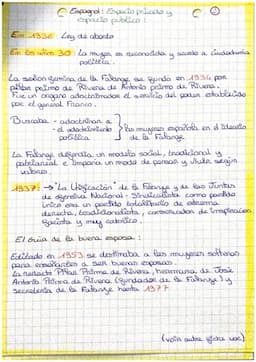 Espagnol: Espacio privado y
espacio público:
En 1936 Ley de aborto
En los años 30: La mujer es reconocida y accede a ciudadanía
política.
La sección femina de la Falange se fundó en 1934 por
Pilar primo de Rivera de Antonio primo de Rivera.
Fue un organo adoctrinador al servicio del poder establecido
por el general Franco.
Buscaba - adoctrinar a
- el adoctrinamiento
política
las mujeres española en el ideario
de la Falange
La Falange defendía un modelo social, tradicional y
patriarcal e imponía un modo de pensar y vivir según
valores.
1937: → La Unificación de la Falange y de las Juntas
de ofensiva Nacional-Sindicalista como partido
único era un partido totalitario de extrema
derecha, tradicionalista, conservador de inspiración
fascista y muy católico.
El guía de la buena esposa:
Editado en 1953 se destinaba a las mujeres solteras
para enseñarles a ser buenas esposas.
La redactó Pilar Primo de Rivera, hermana de José
Antonio Primo de Rivera (fundador de la Falange) y
secretaria de la Falange hasta 1977